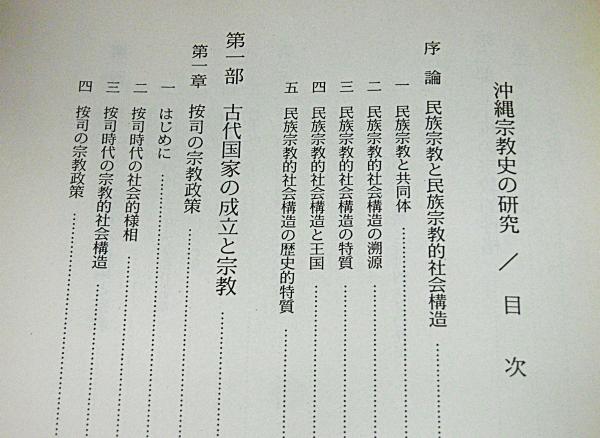 沖縄宗教史の研究 / 目次
序論 民族宗教と民族宗教的社会構造
一 民族宗教と共同体
二 民族宗教的社会構造の溯源
三 民族宗教的社会構造の特質
四 民族宗教的社会構造と王国
五 民族宗教的社会構造の歴史的特質
第一部 古代国家の成立と宗教
第一章 按司の宗教政策
一 はじめに
二 按司時代の社会的様相
三 按司時代の宗教的社会構造
四 按司の宗教政策